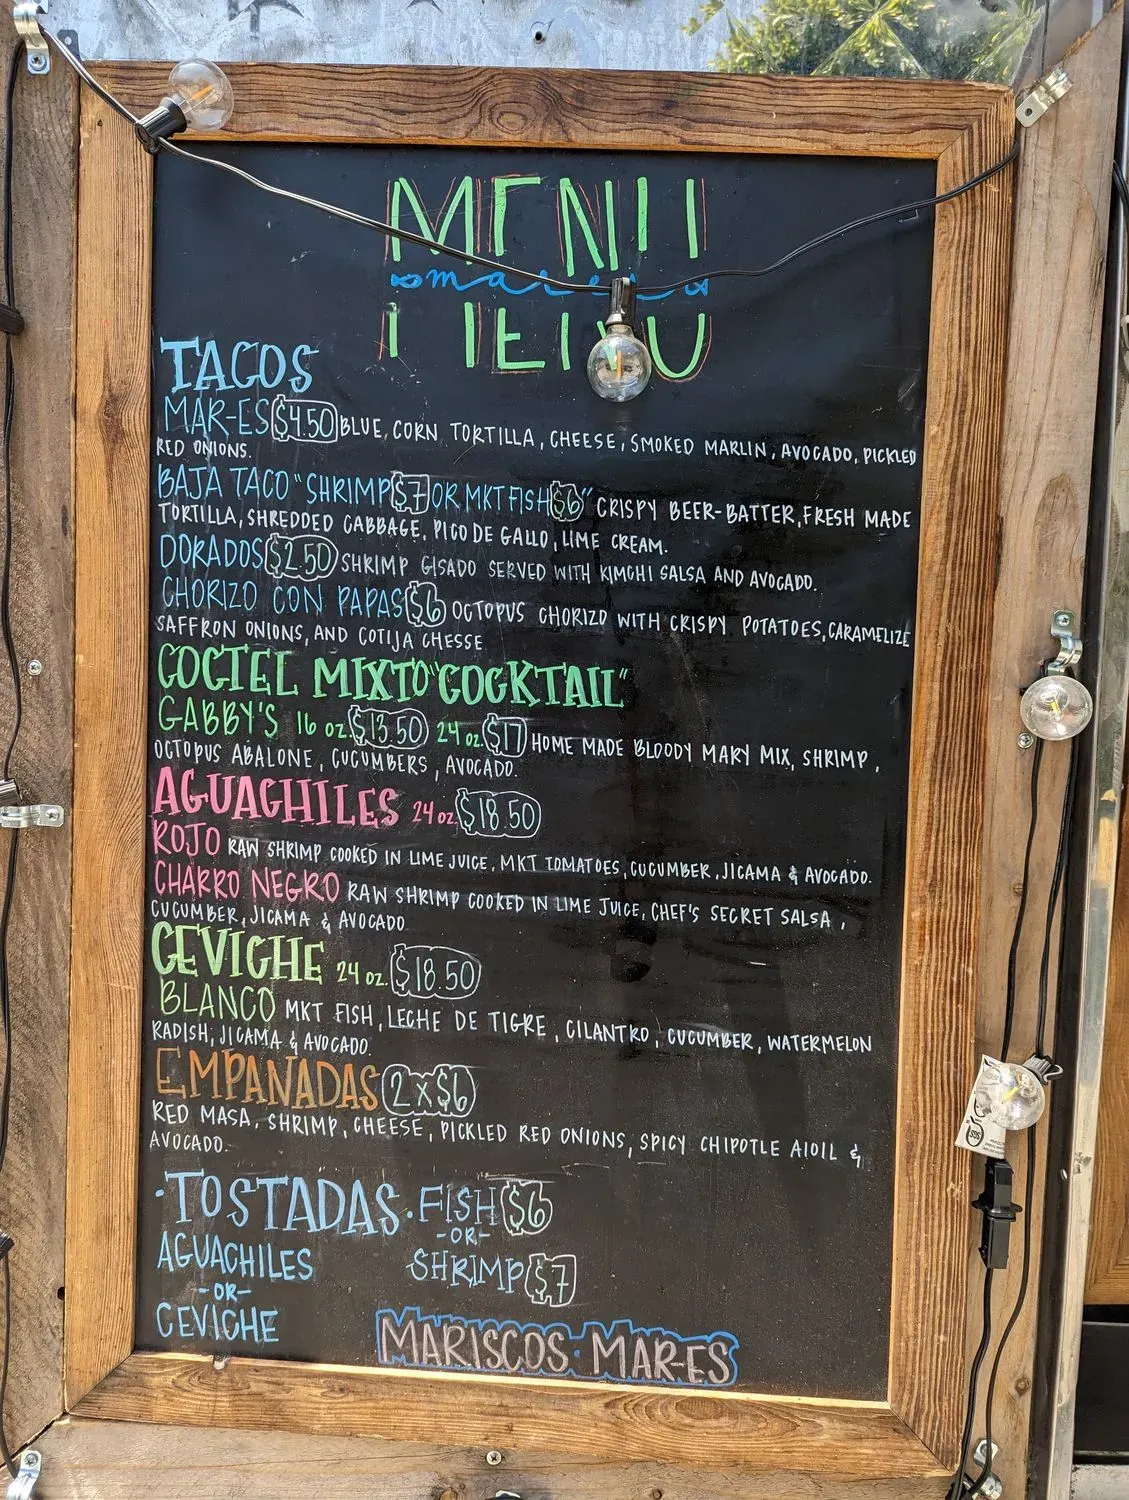 MENU
mares
MENU
TACOS
MAR-ES $4.50 BLUE, CORN TORTILLA, CHEESE, SMOKED MARLIN, AVOCADO, PICKLED
RED ONIONS.
BAJA TACO "SHRIMP $7 OR MKT FISH $6" CRISPY BEER-BATTER, FRESH MADE
TORTILLA, SHREDDED CABBAGE, PICO DE GALLO, LIME CREAM.
DORADOS $2.50 SHRIMP GISADO SERVED WITH KIMCHI SALSA AND AVOCADO.
CHORIZO CON PAPAS $6 OCTOPUS CHORIZO WITH CRISPY POTATOES, CARAMELIZE
SAFFRON ONIONS, AND COTIJA CHESSE
COCTEL MIXTO "COCKTAIL"
GABBY'S 16 oz. $13.50 24 oz. $17 HOME MADE BLOODY MARY MIX, SHRIMP,
OCTOPUS ABALONE, CUCUMBERS, AVOCADO.
AGUACHILES 24 oz. $18.50
ROJO RAW SHRIMP COOKED IN LIME JUICE, MKT TOMATOES, CUCUMBER, JICAMA & AVOCADO.
CHARRO NEGRO RAW SHRIMP COOKED IN LIME JUICE, CHEF'S SECRET SALSA,
CUCUMBER, JICAMA & AVOCADO
CEVICHE 24 oz. $18.50
BLANCO MKT FISH, LECHE DE TIGRE, CILANTRO, CUCUMBER, WATERMELON
RADISH, JICAMA & AVOCADO.
EMPANADAS 2x$6
RED MASA, SHRIMP, CHEESE, PICKLED RED ONIONS, SPICY CHIPOTLE AIOIL &
AVOCADO.
·TOSTADAS· FISH $6
-OR-
AGUACHILES SHRIMP $7
-OR-
CEVICHE
MARISCOS MAR-ES